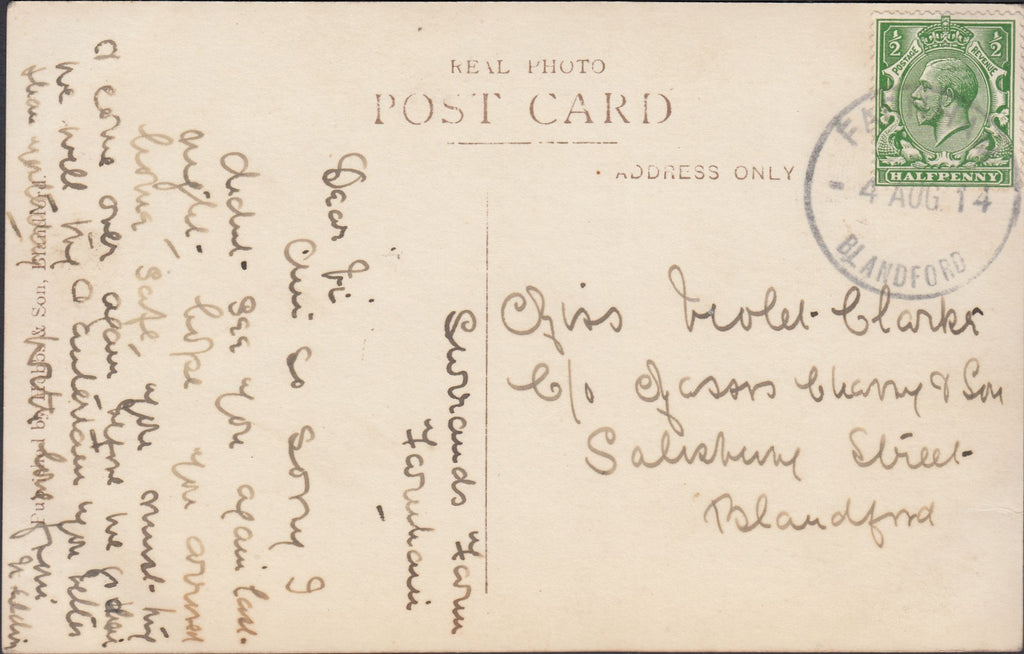 REAL PHOTO
POST CARD
ADDRESS ONLY
½ ½
POSTAGE REVENUE
HALFPENNY
FA
4 AUG 14
BLANDFORD
Miss Violet Clarke
C/o Messrs Charry & Son
Salisbury Street
Blandford
Farm
Farnham
Dear Vi
Am so sorry I
didnt see you again last
night hope you arrived
home safe you must try
& come over again before we go then
we will try & entertain you better
than yesterday with love from
& Son,